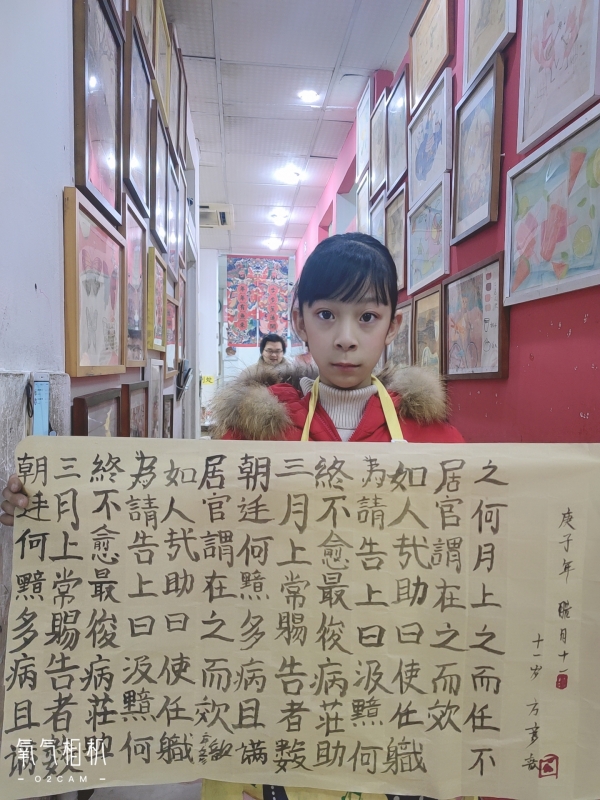 朝廷何黯多病且满
三月上常賜告者數
終不愈最俊病莊助
為請告上曰汲黯何
如人哉助曰使任職
居官謂在之而效
朝廷何黯多病且满
三月上常賜告者數
終不愈最俊病莊助
為請告上曰汲黯何
如人哉助曰使任職
居官謂在之而效
之何月上之而任不
庚子年 臘月十二
十一岁 方
氧气相机
O2CAM